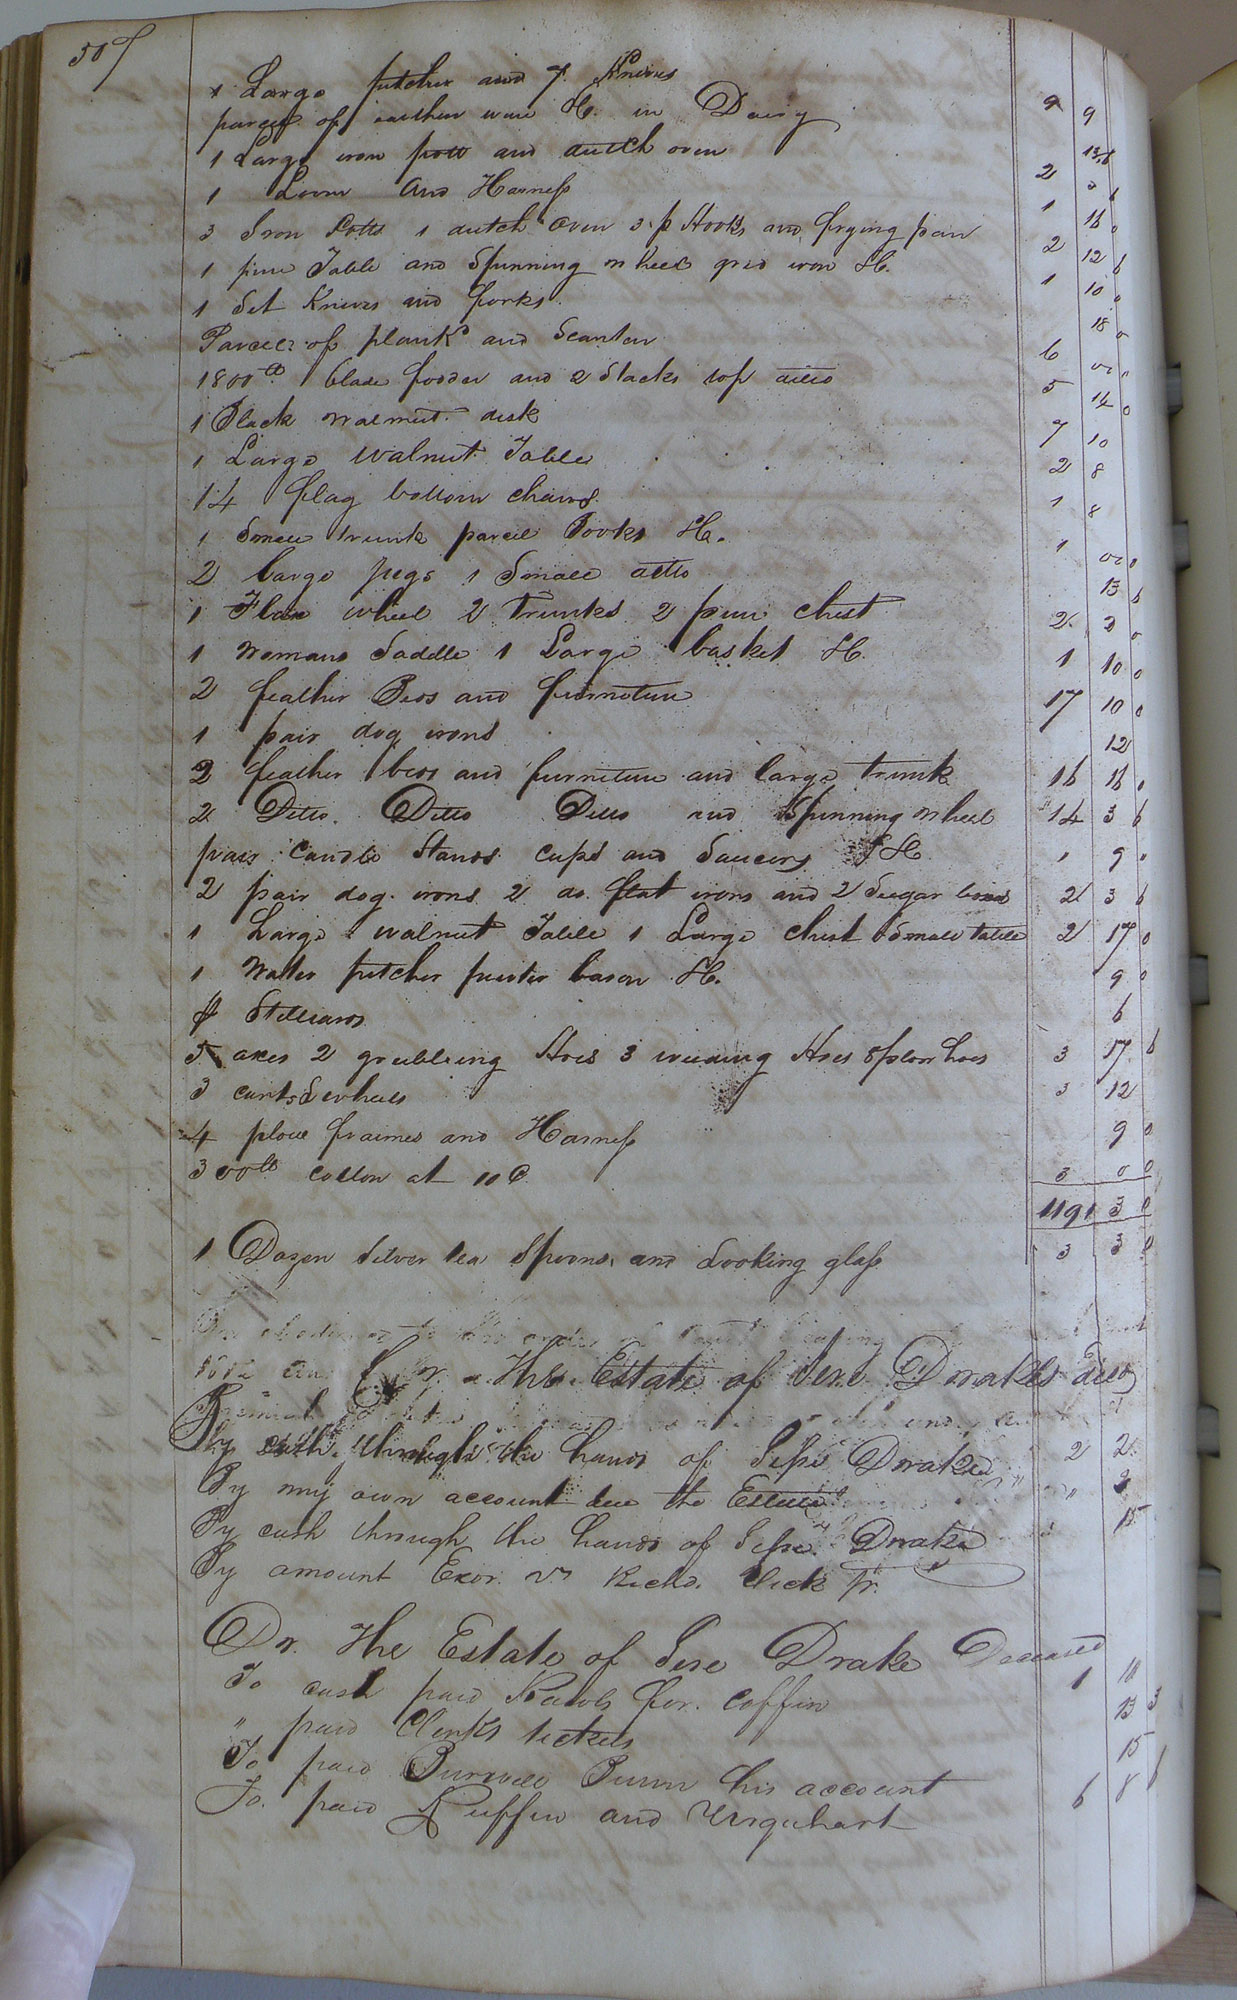 507
1 Large pitcher and 7 Knives
parcel of earthen ware &c. in Dairy 9 9
1 Large iron pott and dutch oven 13 6
1 Loom and Harness 2 6
3 Iron Potts 1 dutch Oven 3 p Hooks and frying pan 1 16 0
1 pine Table and Spinning wheel grid iron &c. 2 12 6
1 Set Knives and forks 1 10 0
Parcel of plank and Scantln 18 0
1800 lb blade fodder and 2 Stacks top ditto 6 00 0
1 Black walnut desk 5 14 0
1 Large walnut Table 7 10
14 flag bottom chairs 2 8
1 Small trunk parcel Books &c. 1 8
2 large jugs 1 Small ditto 1 00 0
1 Flax wheel 2 Trunks 2 pine chest 13 6
1 womans Saddle 1 Large basket &c. 2 2 0
2 feather Beds and furniture 1 10 0
1 pair dog irons 17 10 0
2 feather beds and furniture and large trunk 12
2 Ditto Ditto Ditto and Spinning wheel 16 16 0
pair candle Stands cups and Saucers &c 14 3 6
2 pair dog irons 2 do. flat irons and 2 Sugar boxes 1 9 0
1 Large walnut Table 1 Large chest Small table 2 3 6
1 Water pitcher pewter bason &c. 2 17 0
Stilliards 9 0
5 axes 2 grubbing Hoes 3 weeding Hoes 8 plow hoes 6
3 carts & wheels 3 17 6
4 plow fraimes and Harness 3 12
300 lb cotton at 10 C 9 0
3 0 0
1191 3 0
1 Dozen Silver tea Spoons and Looking glass 3 3 0
Cr. The Estate of Jere Drakes decd
By cash through the hands of Jesse Drake 2 2
By my own account due the Estate
By cash through the hands of Jesse Drake 15
By amount Exor. vs Richd. Jr.
Dr. The Estate of Jere Drake Deceased
To cash paid Rawls for coffin 1 10
" paid Clerks tickets 13 3
To paid Burwell Bunn his account 15
To. paid Ruffin and Urquhart 6 8 6